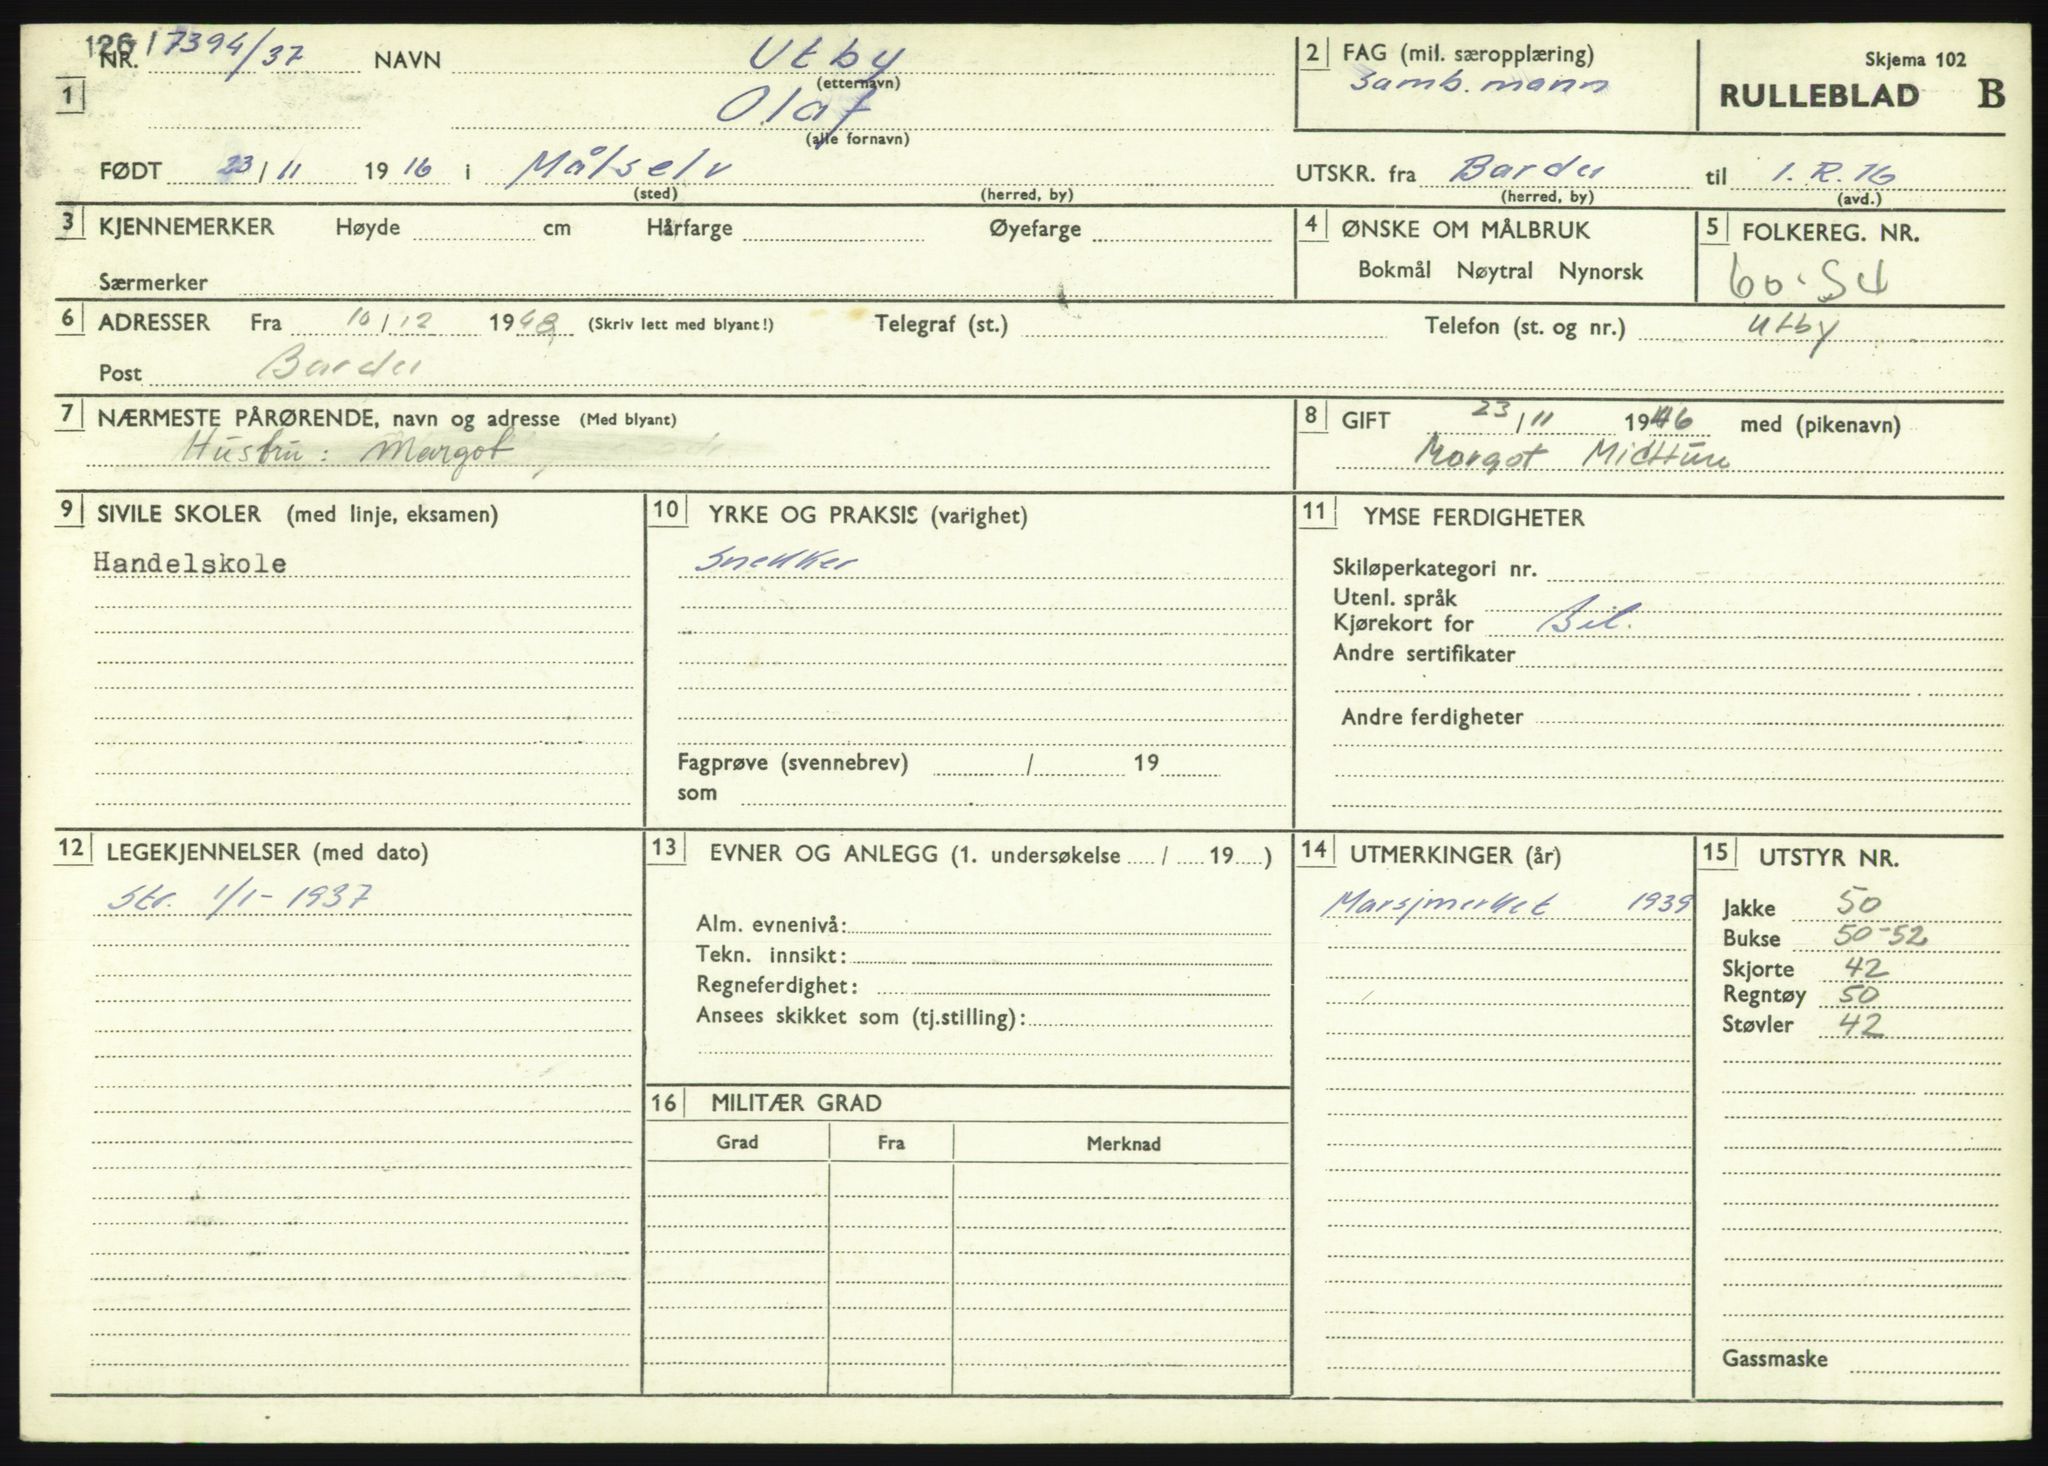 NR. 126/7394/37 NAVN Utby
(etternavn)
1 Olaf
(alle fornavn)
2 FAG (mil. særopplæring)
Samb. mann
Skjema 102
RULLEBLAD B
FØDT 23/11 1916 i Målselv
(sted) (herred, by)
UTSKR. fra Bardu til I.R.16
(herred, by) (avd.)
3 KJENNEMERKER Høyde cm Hårfarge Øyefarge
Særmerker
4 ØNSKE OM MÅLBRUK
Bokmål Nøytral Nynorsk
5 FOLKEREG. NR.
6 ADRESSER Fra 10/12 1948 (Skriv lett med blyant!) Telegraf (st.) Telefon (st. og nr.) Utby
Post Bardu
7 NÆRMESTE PÅRØRENDE, navn og adresse (Med blyant)
Hustru: Margot
8 GIFT 23/11 1946 med (pikenavn)
Margot Midttun
9 SIVILE SKOLER (med linje, eksamen)
Handelskole
10 YRKE OG PRAKSIS (varighet)
Snekker
Fagprøve (svennebrev) / 19
som
11 YMSE FERDIGHETER
Skiløperkategori nr.
Utenl. språk
Kjørekort for Bil.
Andre sertifikater
Andre ferdigheter
12 LEGEKJENNELSER (med dato)
Str. 1/1-1937
13 EVNER OG ANLEGG (1. undersøkelse / 19 )
Alm. evnenivå:
Tekn. innsikt:
Regneferdighet:
Ansees skikket som (tj.stilling):
14 UTMERKINGER (år)
Marsjmerket 1939
15 UTSTYR NR.
Jakke 50
Bukse 50-52
Skjorte 42
Regntøy 50
Støvler 42
Gassmaske
16 MILITÆR GRAD
Grad Fra Merknad